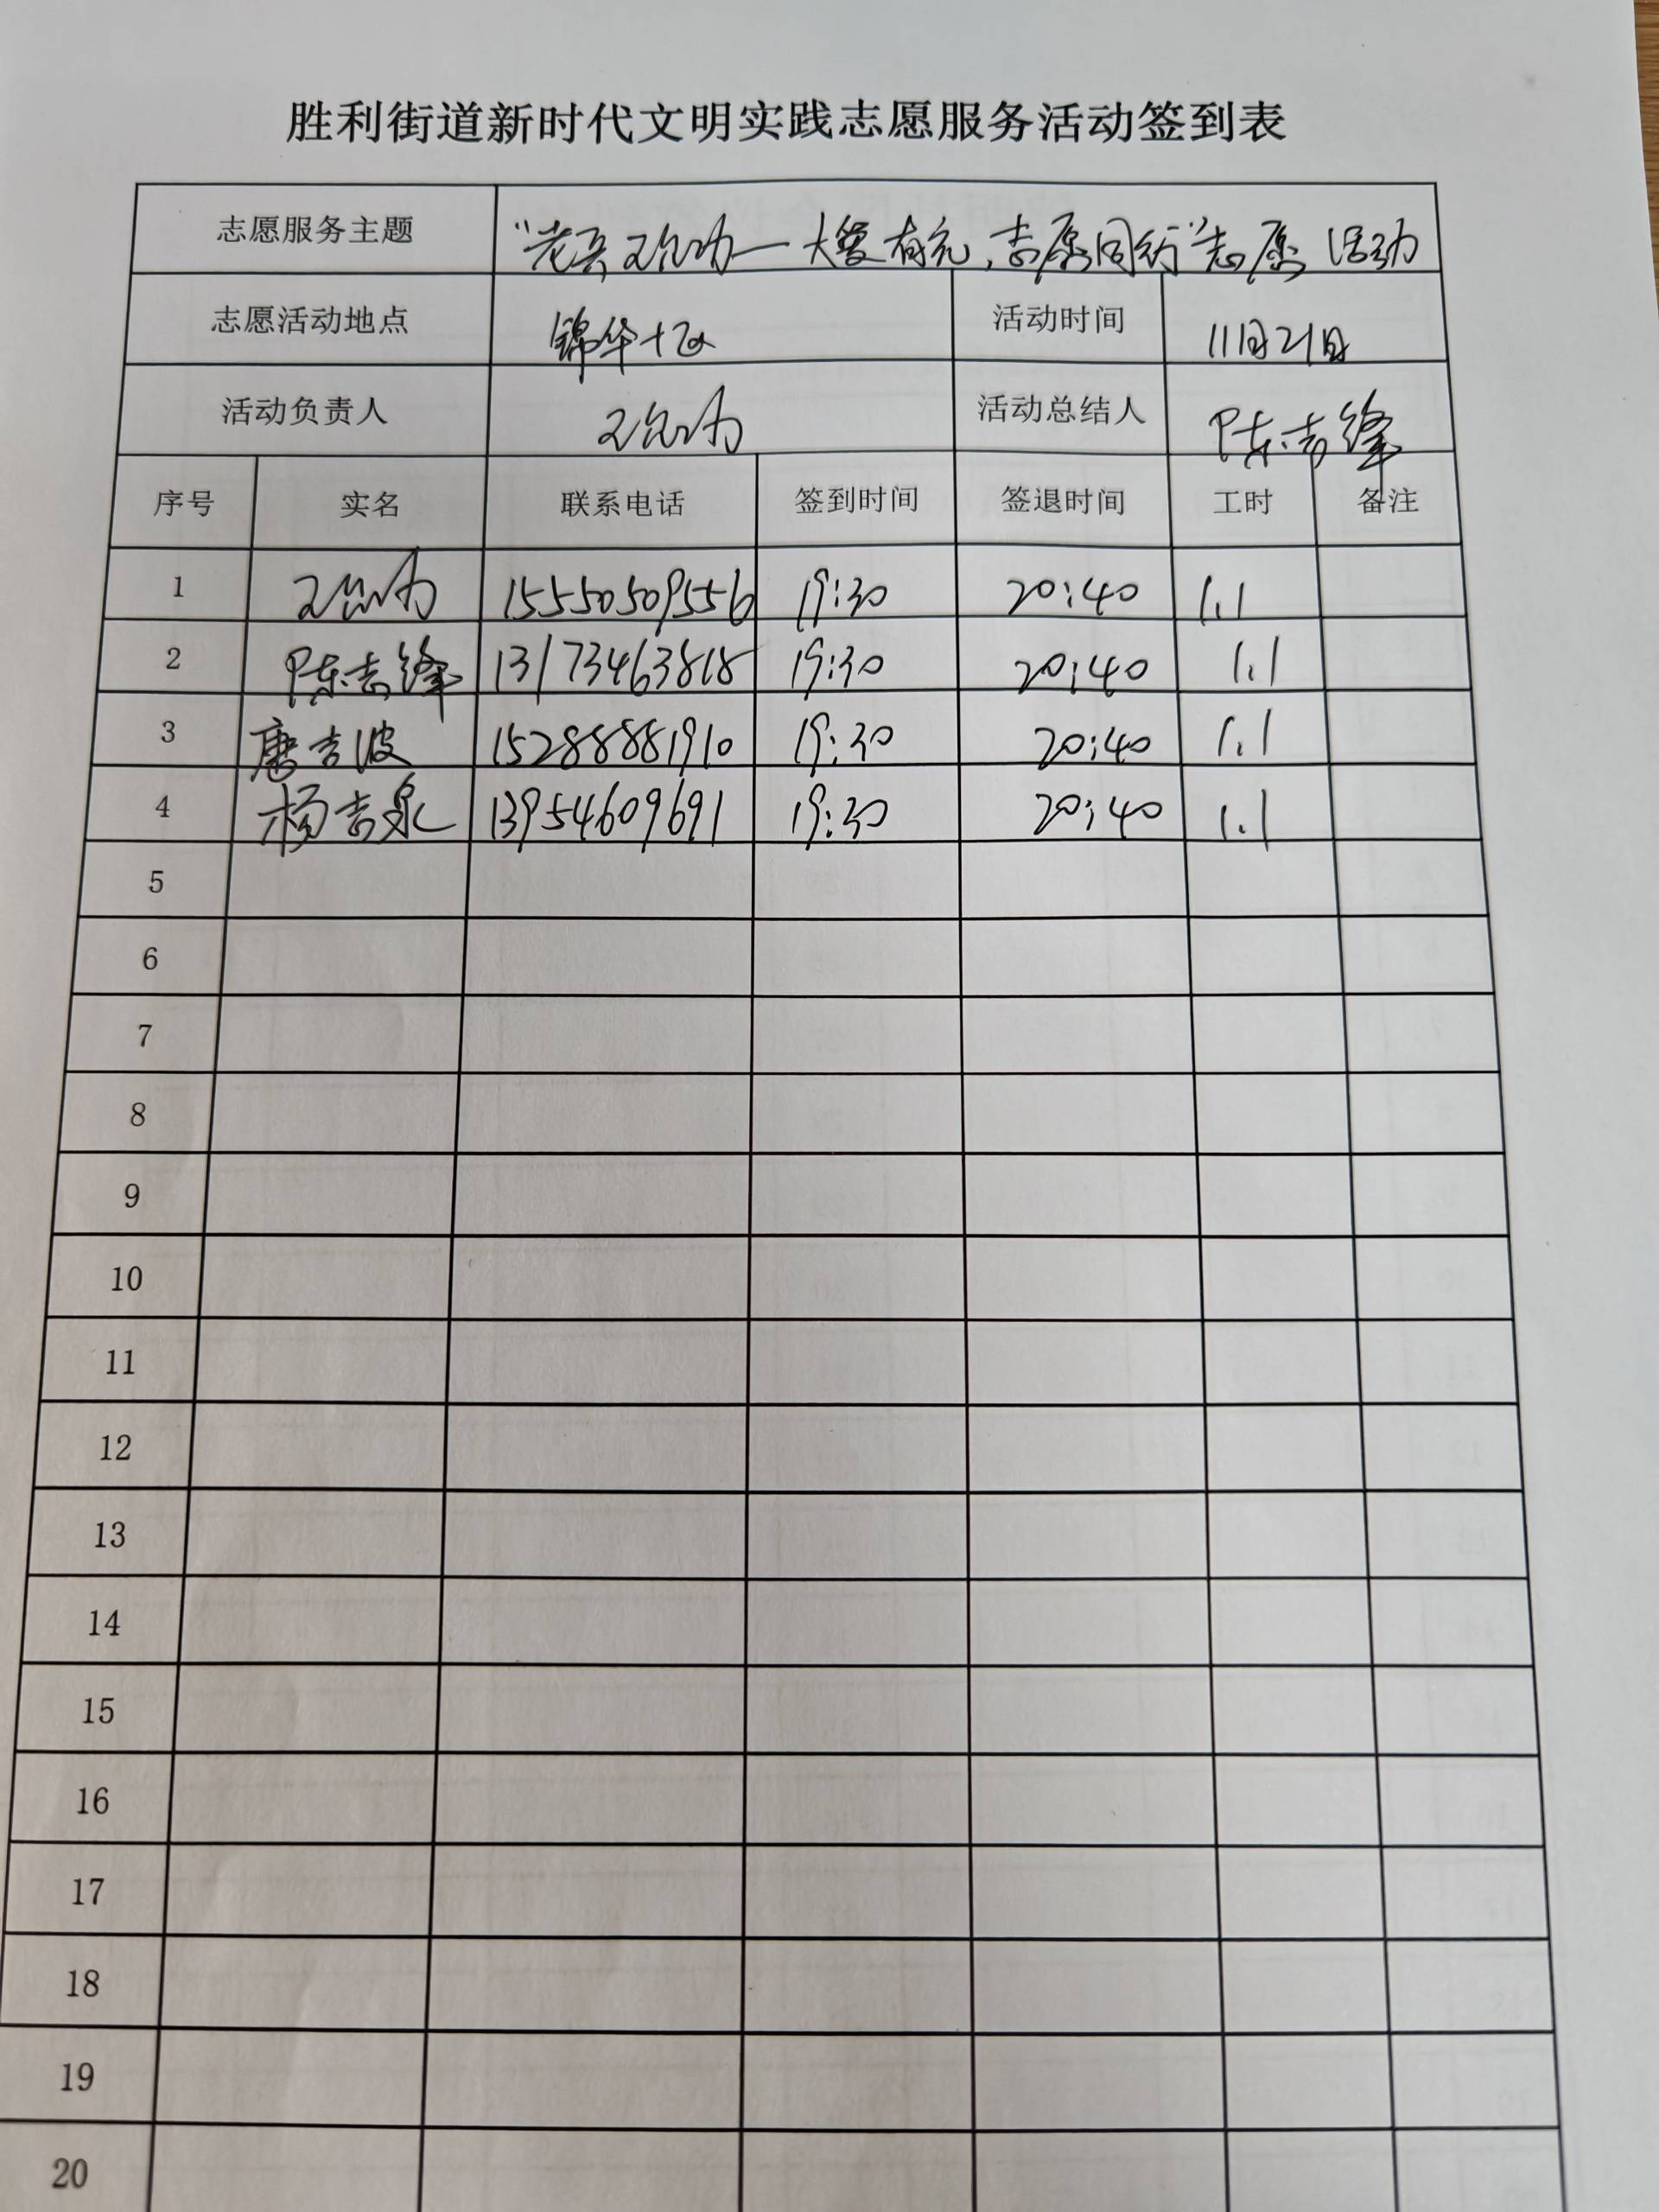 胜利街道新时代文明实践志愿服务活动签到表
志愿服务主题 "老兵 一大爱有元，志愿同行"志愿 活动
志愿活动地点 锦华十区 活动时间 11月21日
活动负责人 活动总结人 陈志锋
序号 实名 联系电话 签到时间 签退时间 工时 备注
1 15550509556 19:30 20:40 1.1
2 陈志锋 13173463818 19:30 20:40 1.1
3 唐吉波 15288881910 19:30 20:40 1.1
4 杨吉泉 13954609691 19:30 20:40 1.1
5
6
7
8
9
10
11
12
13
14
15
16
17
18
19
20